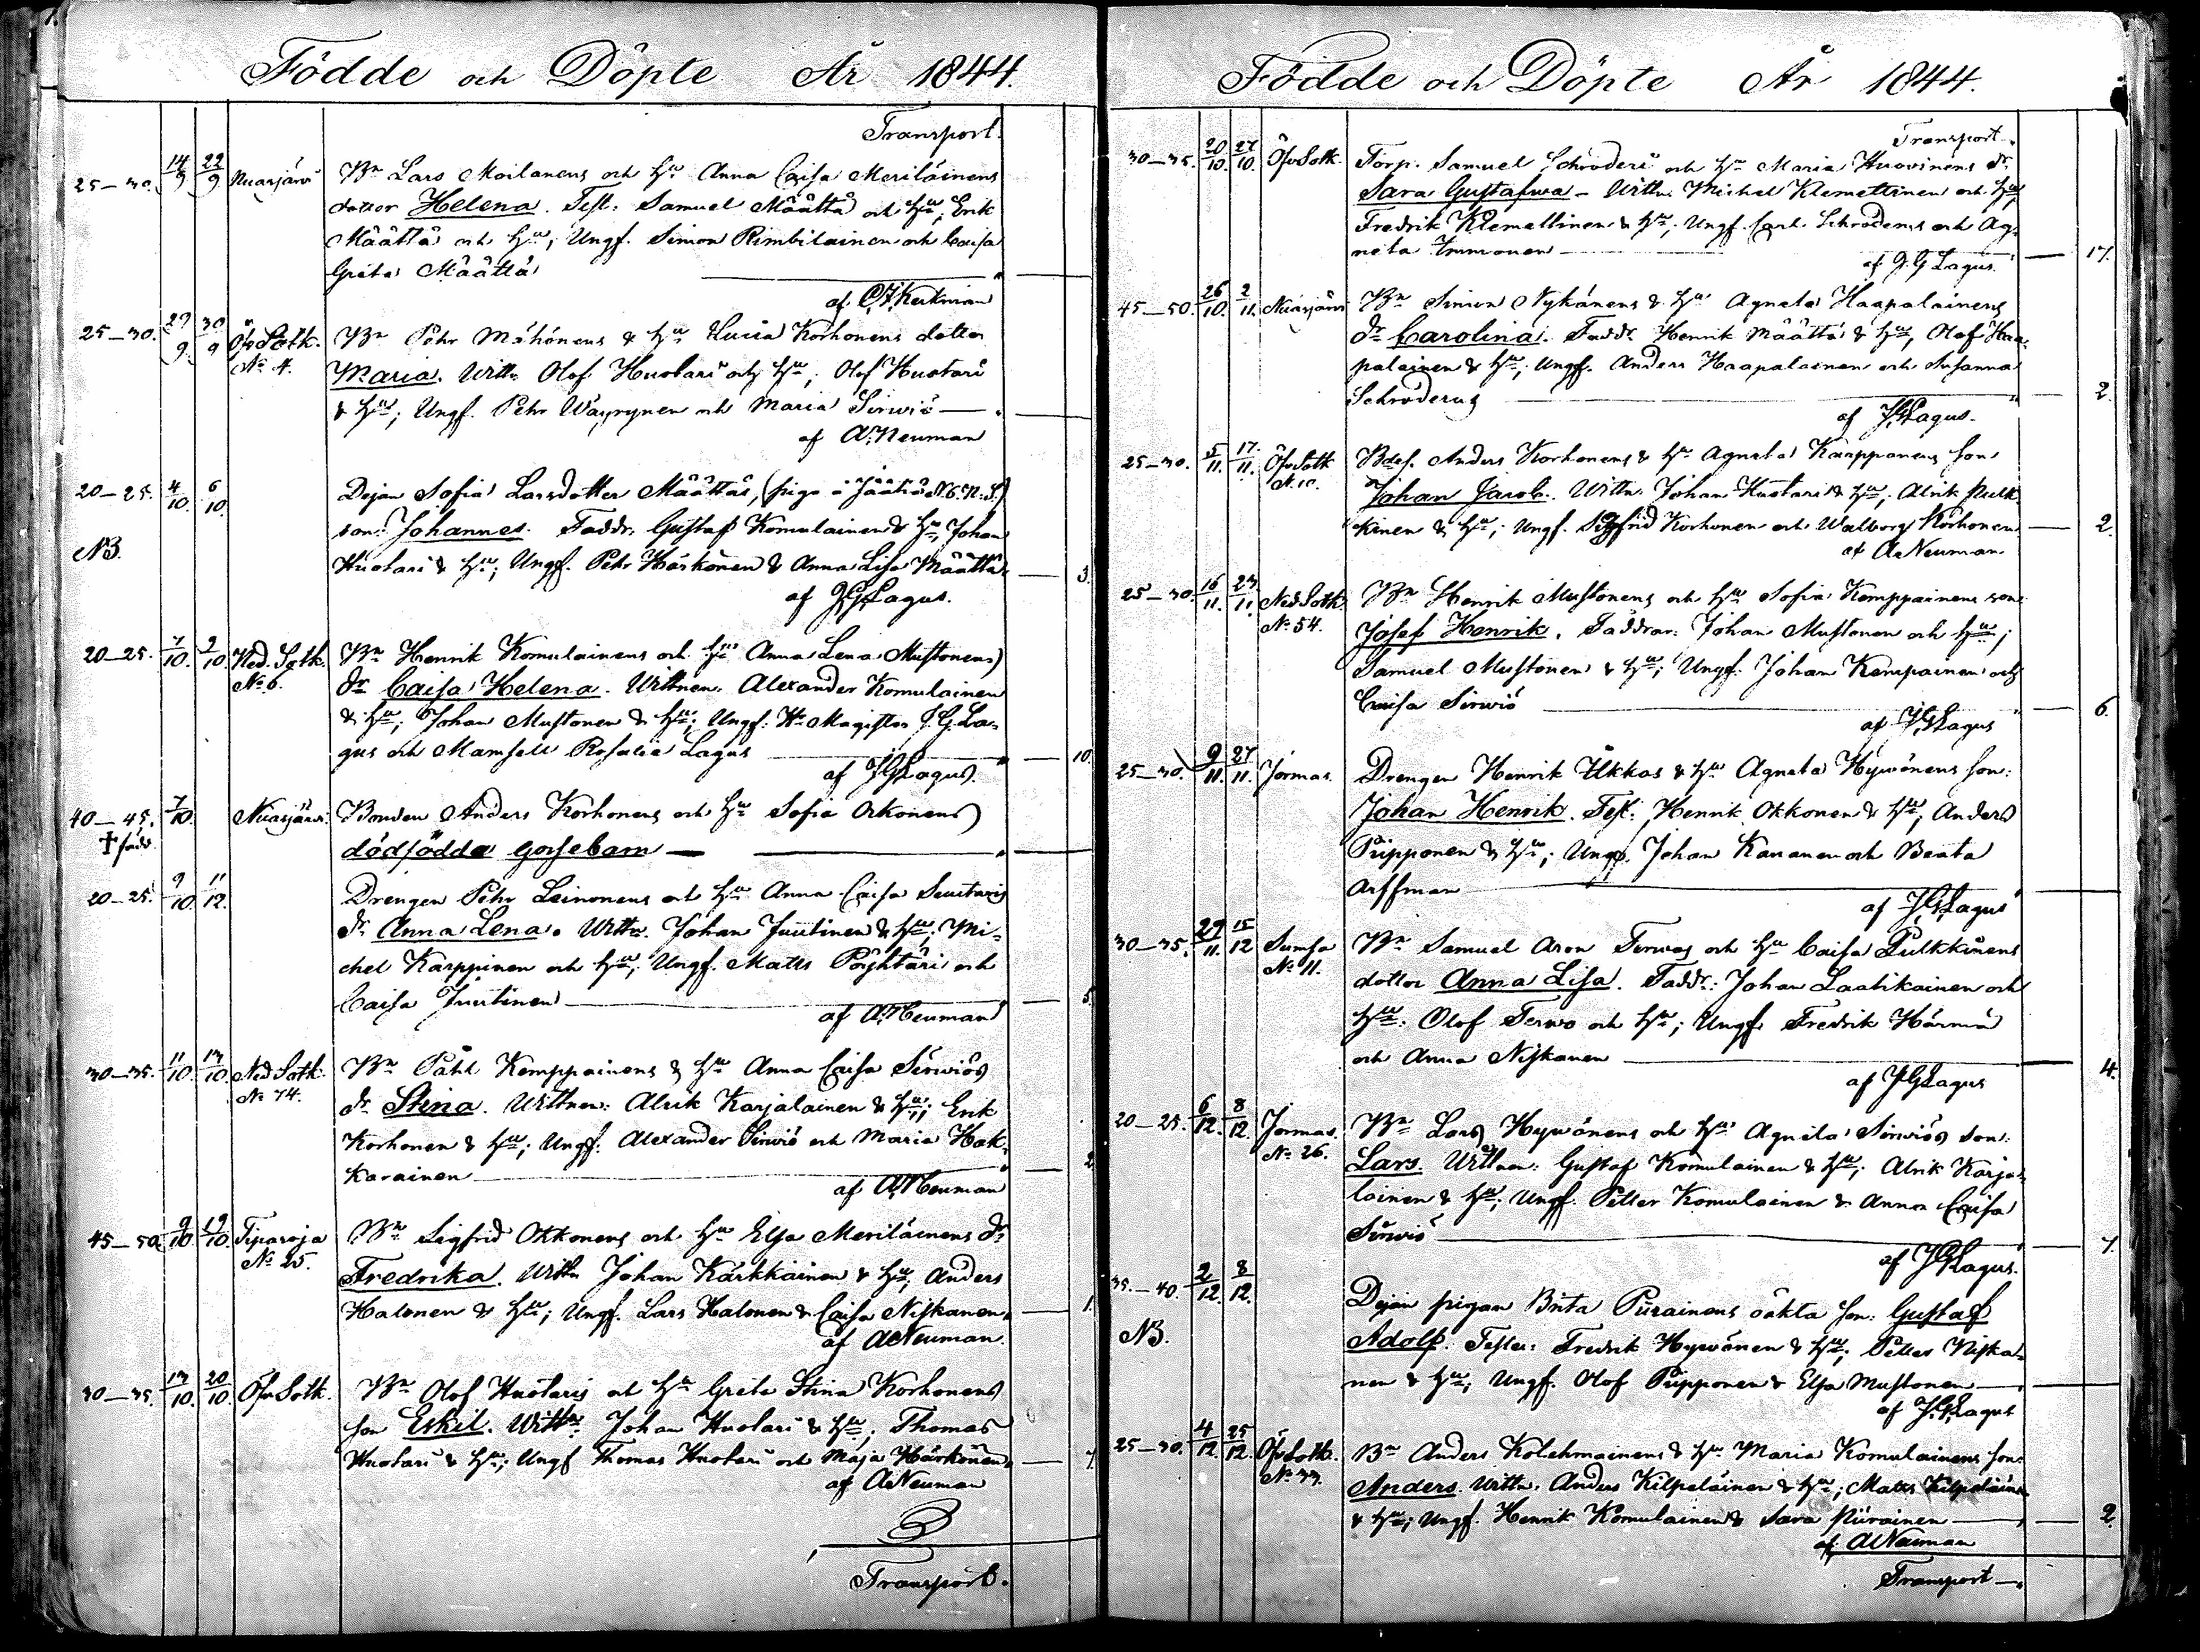 Födde och Döpte År 1844.
Transport.
25–30. 14/9 22/9 Nuasjärvi Bn Lars Moilanens och Hu Anna Caisa Meriläinens
dotter Helena. Test: Samuel Määttä och Hu; Erik
Määttä och Hu; Ungf. Simon Rimbiläinen och Caisa
Greta Määttä
af C.F. Keckman
25–30. 29/9 30/9 Öfv Sotk. No 4. Bn Pehr Möhönens & Hu Lucia Korhonens dotter
Maria. Wittn. Olof Huotari och Hu; Olof Huotari
& Hu; Ungf. Pehr Wäyrynen och Maria Sirwiö
af A. Neuman
20–25. 4/10 6/10 Dejan Sofia Larsdotter Määttäs, (piga å Jäätiö N. 6. N. S.)
NB. son: Johannes. Faddr. Gustaf Komulainen & Hu, Johan
Huotari & Hu; Ungf. Pehr Härkönen & Anna Lisa Määttä. 3.
af J.G. Lagus.
20–25. 7/10 9/10 Ned. Sotk. No 6. Bn Henrik Komulainens och Hu Anna Lena Mustonens
dr Caisa Helena. Wittnen. Alexander Komulainen
& Hu; Johan Mustonen & Hu; Ungf. Hr Magister J. G. La-
gus och Mamsell Rosalie Lagus 10.
af J.G. Lagus.
40–45. 7/10 Nuasjärvi Bonden Anders Korhonens och Hu Sofia Okkonens
dödfödda gossebarn
20–25. 9/10 11/12. Drengen Pehr Leinonens och Hu Anna Caisa
dr Anna Lena. Wittn. Johan Juutinen & Hu; Mi-
chel Karppinen och Hu; Ungf. Matts Pöyhtäri och
Caisa Juutinen 5.
af A. Neuman
30–35. 11/10 13/10 Ned Sotk. No 74. Bn Påhl Kemppainens & Hu Anna Caisa Sirwiös
dr Stina. Wittnen: Alrik Karjalainen & Hu; Erik
Korhonen & Hu; Ungf. Alexander Sirwiö och Maria Hak-
karainen 2.
af A. Neuman
45–50. 9/10 19/10. Tipasoja No 25. Bn Sigfrid Okkonens och Hu Elsa Meriläinens dr
Fredrika. Wittn Johan Kärkkäinen & Hu, Anders
Halonen & Hu; Ungf. Lars Halonen & Caisa Niskanen. 1.
af A. Neuman.
30–35. 13/10. 20/10. Öfv Sotk. Bn Olof Huotaris och Hu Greta Stina Korhonens
son Eskil. Wittn. Johan Huotari & Hu; Thomas
Huotari & Hu; Ungf Thomas Huotari och Maja Härkönen. 7.
af A. Neuman
Transport.
Födde och Döpte År 1844.
Transport.
30–35. 20/10. 27/10. Öfv Sotk. Torp. Samuel Schröderi och Hu Maria Huovinens dr
Sara Gustafwa – Wittn. Michel Klemettinen och Hu,
Fredrik Klemettinen & Hu; Ungf. Carl Schröderus och Ag-
neta Immonen 17.
af J. G Lagus.
45–50. 26/10. 2/11. Nuasjärvi Bn Simon Nykänens & Hu Agneta Haapalainens
dr Carolina. Faddr. Henrik Määttä & Hu, Olof Haa-
palainen & Hu; Ungf. Anders Haapalainen och Susanna
Schröderus 2.
af J.G. Lagus.
25–30. 5/11. 17/11. Öfv Sotk No 10. Bdes. Anders Korhonens & Hu Agneta Karpponens son
Johan Jacob. Wittn. Johan Huotari & Hu; Alrik Pulk-
kinen & Hu; Ungf. Sigfrid Korhonen och Walborg Korhonen 2.
af A. Neuman
25–30. 16/11. 23/11. Ned Sotk. No 54. Bn Henrik Mustonens och Hu Sofia Kemppainens son:
Josef Henrik. Faddrar: Johan Mustonen och Hu;
Samuel Mustonen & Hu; Ungf. Johan Kempainen och
Caisa Sirwiö 6.
af J.G. Lagus
25–30. 9/11. 27/11. Jormas. Drengen Henrik Ukkos & Hu Agneta Hywönens son:
Johan Henrik. Test: Henrik Okkonen & Hu, Anders
Piipponen & Hu; Ungf. Johan Kananen och Beata
Arffman
af J.G. Lagus
30–35. 29/11. 15/12 Sumsa No 11. Bn Samuel Aron Terwos och Hu Caisa Pulkkinens
dotter Anna Lisa. Faddr: Johan Laatikainen och
Hu: Olof Terwo och Hu; Ungf. Fredrik Härmä
och Anna Niskanen 4.
af J.G. Lagus
20–25. 6/12. 8/12. Jormas. No 26. Bn Lars Hywönens och Hu Agneta Sirwiös son:
Lars. Wittnen: Gustaf Komulainen & Hu; Alrik Karja-
lainen & Hu; Ungf. Petter Komulainen & Anna Caisa
Sirwiö 7.
af J.G. Lagus.
35–40. 2/12. 8/12. Dejan pigan Brita Piirainens oäkta son: Gustaf
NB. Adolf. Testes: Fredrik Hyvönen & Hu; Petter Niska-
nen & Hu; Ungf. Olof Piipponen & Elsa Mustonen
af J.G. Lagus
25–30. 4/12. 25/12. Öfv Sotk. No 33. Bn Anders Kolehmainens & Hu Maria Komulainens son:
Anders. Wittn. Anders Kilpeläinen & Hu; Matts Kilpeläinen
& Hu; Ungf. Henrik Komulainen & Sara Piirainen 2.
af A. Neuman
Transport